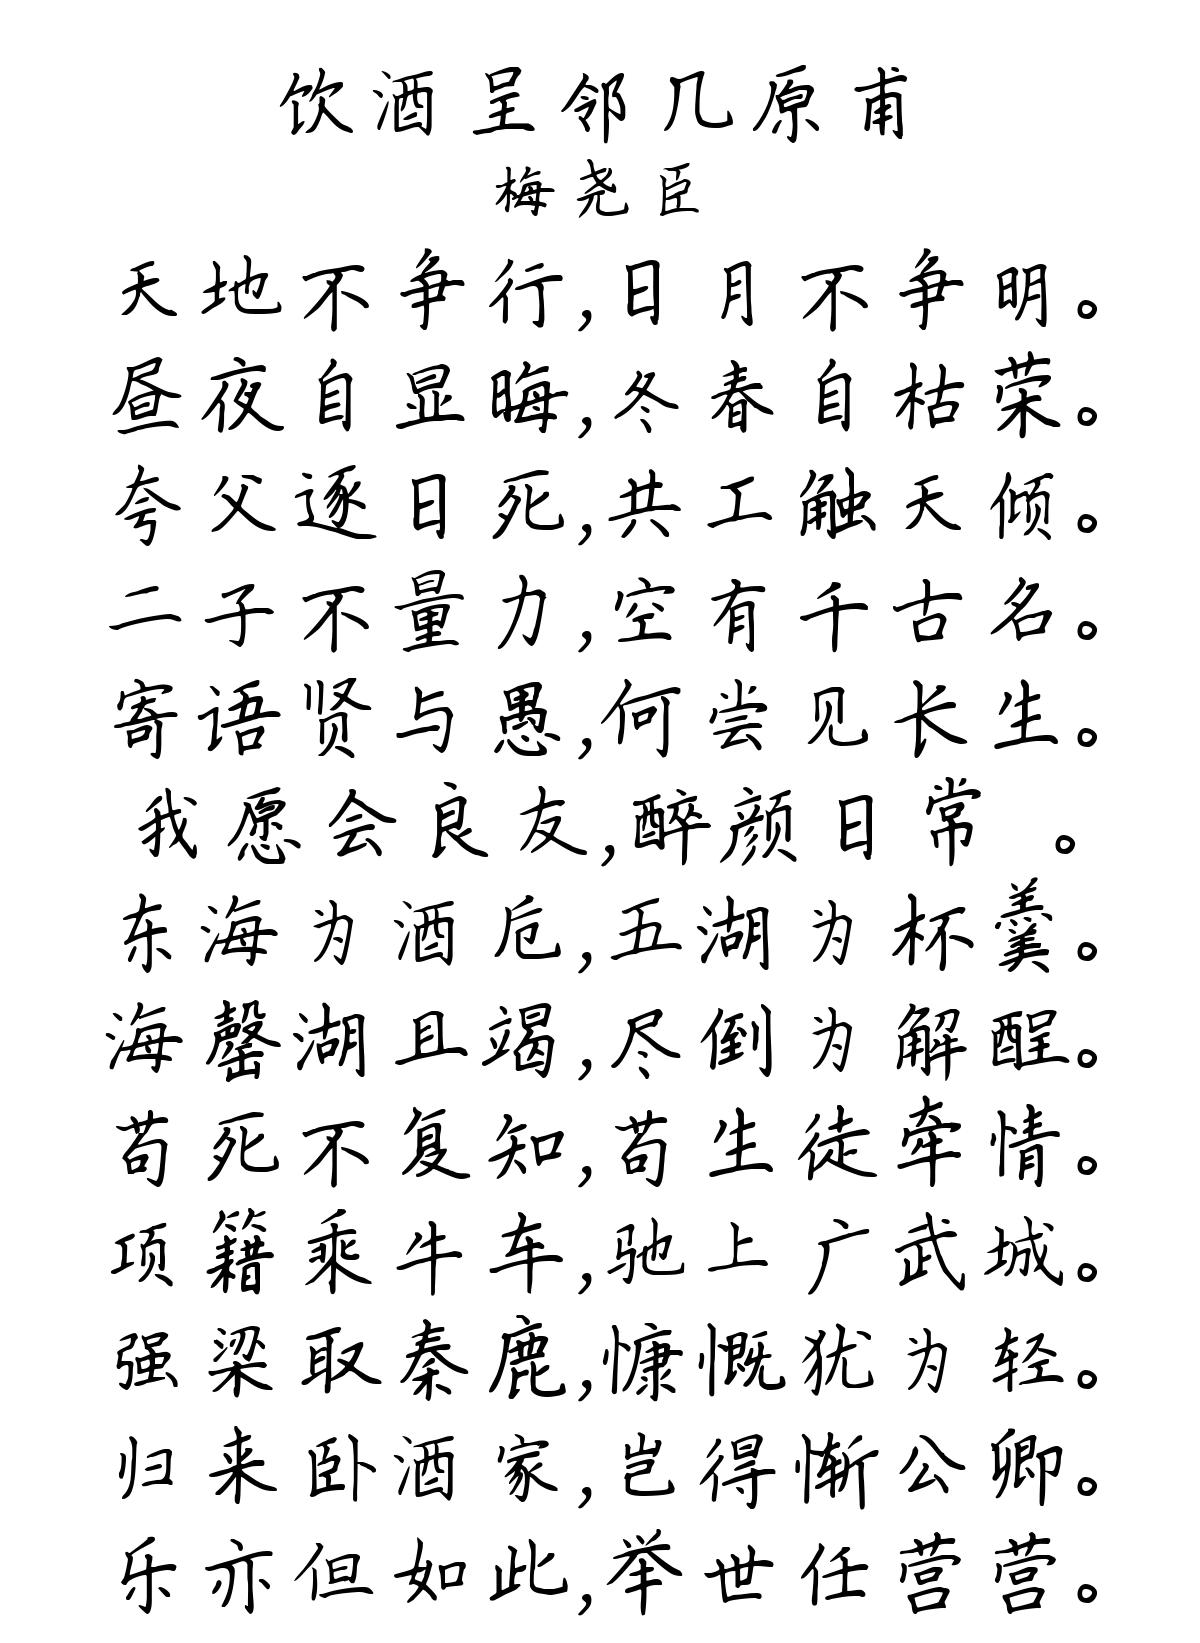 饮酒呈邻几原甫
梅尧臣
天地不争行,日月不争明。
昼夜自显晦,冬春自枯荣。
夸父逐日死,共工触天倾。
二子不量力,空有千古名。
寄语贤与愚,何尝见长生。
我愿会良友,醉颜日常 。
东海为酒卮,五湖为杯羹。
海罄湖且竭,尽倒为解酲。
苟死不复知,苟生徒牵情。
项籍乘牛车,驰上广武城。
强梁取秦鹿,慷慨犹为轻。
归来卧酒家,岂得惭公卿。
乐亦但如此,举世任营营。